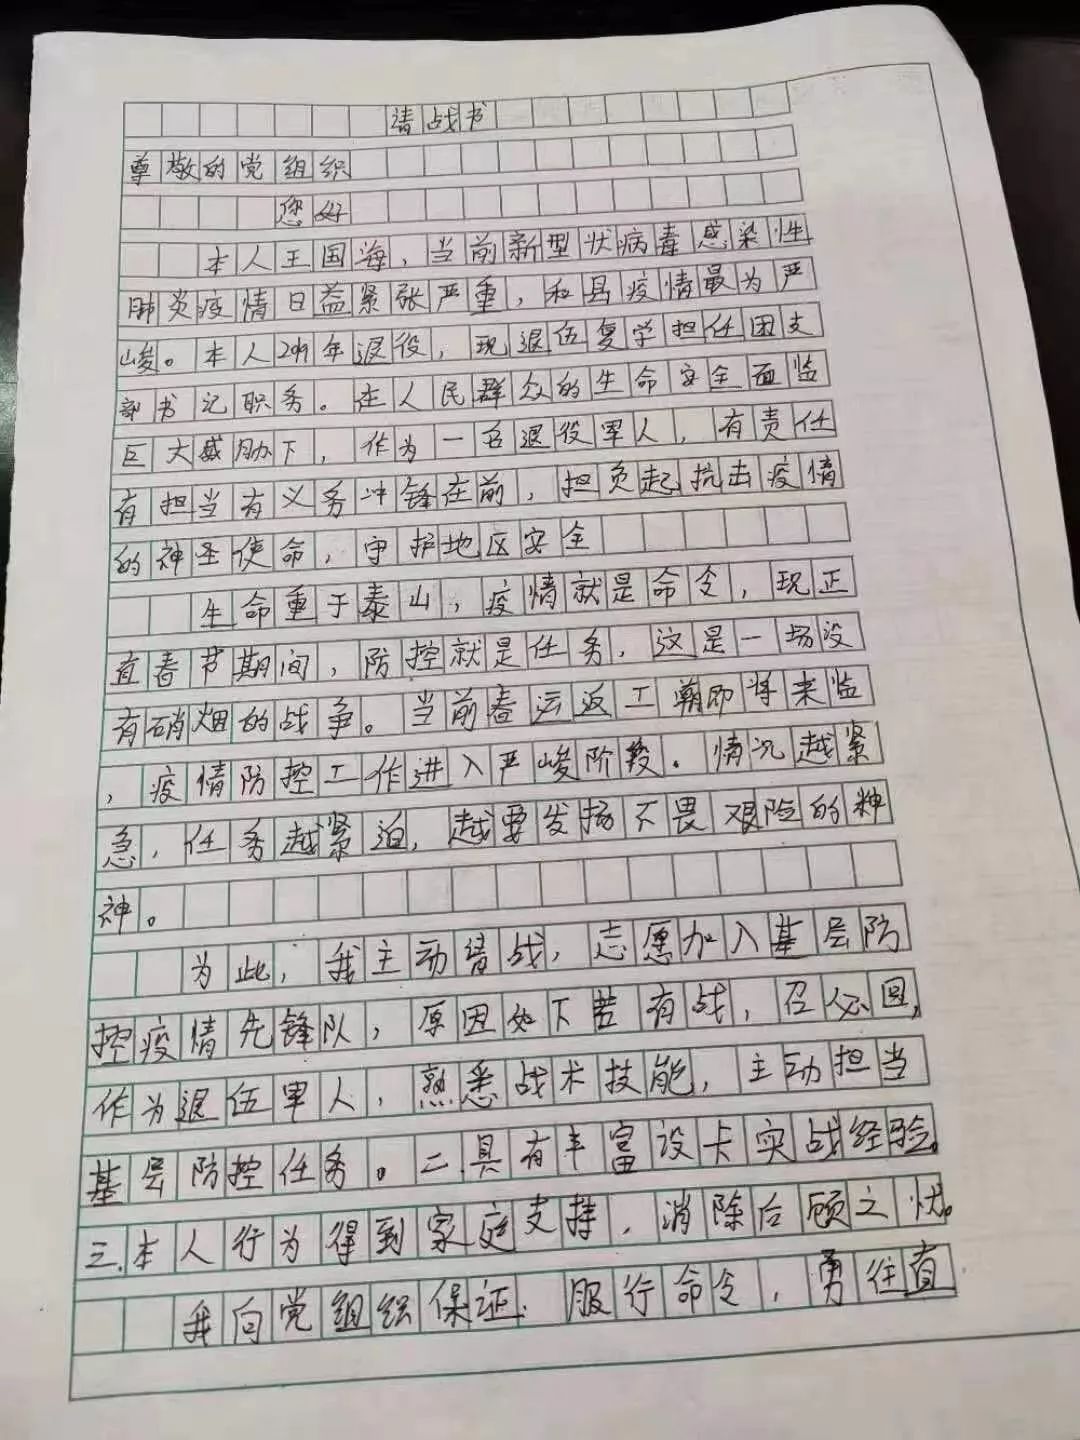 请战书
尊敬的党组织
您好
本人王国海，当前新型状病毒感染性
肺炎疫情日益紧张严重，和县疫情最为严
峻。本人2019年退役，现退伍复学担任团支
部书记职务。在人民群众的生命安全面监
巨大威胁下，作为一名退役军人，有责任
有担当有义务冲锋在前，担负起抗击疫情
的神圣使命，守护地区安全
生命重于泰山，疫情就是命令，现正
直春节期间，防控就是任务，这是一场没
有硝烟的战争。当前春运返工潮即将来监
，疫情防控工作进入严峻阶段．情况越紧
急，任务越紧迫，越要发扬不畏艰险的精
神。
为此，我主动请战，志愿加入基层防
控疫情先锋队，原因如下若有战，召必回，
作为退伍军人，熟悉战术技能，主动担当
基层防控任务。二具有丰富设卡实战经验。
三．本人行为得到家庭支持，消除后顾之忧。
我向党组织保证．服行命令，勇往直